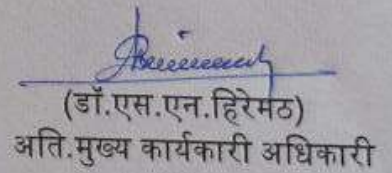 (डॉ.एस.एन.हिरेमठ)
अति.मुख्य कार्यकारी अधिकारी